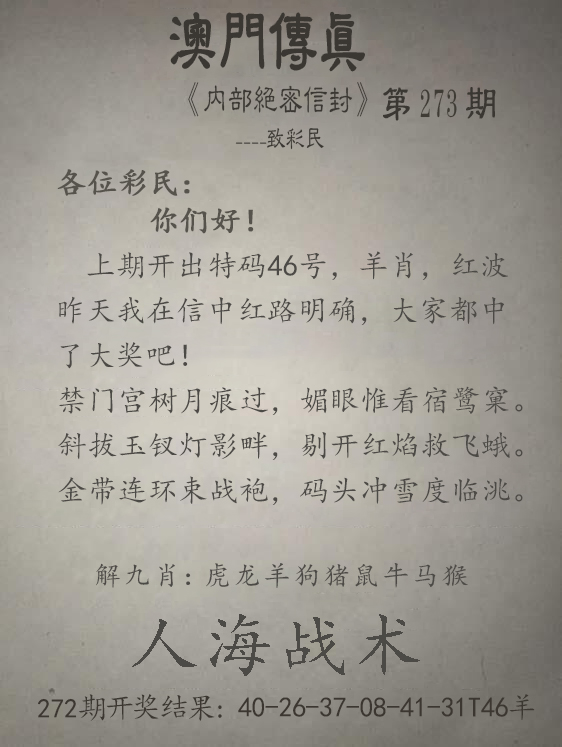 澳門傳眞
《内部絕密信封》第273期
----致彩民
各位彩民：
你们好！
上期开出特码46号，羊肖，红波
昨天我在信中红路明确，大家都中
了大奖吧！
禁门宫树月痕过，媚眼惟看宿鹭窠。
斜拔玉钗灯影畔，剔开红焰救飞蛾。
金带连环束战袍，码头冲雪度临洮。
解九肖：虎龙羊狗猪鼠牛马猴
人海战术
272期开奖结果：40-26-37-08-41-31T46羊